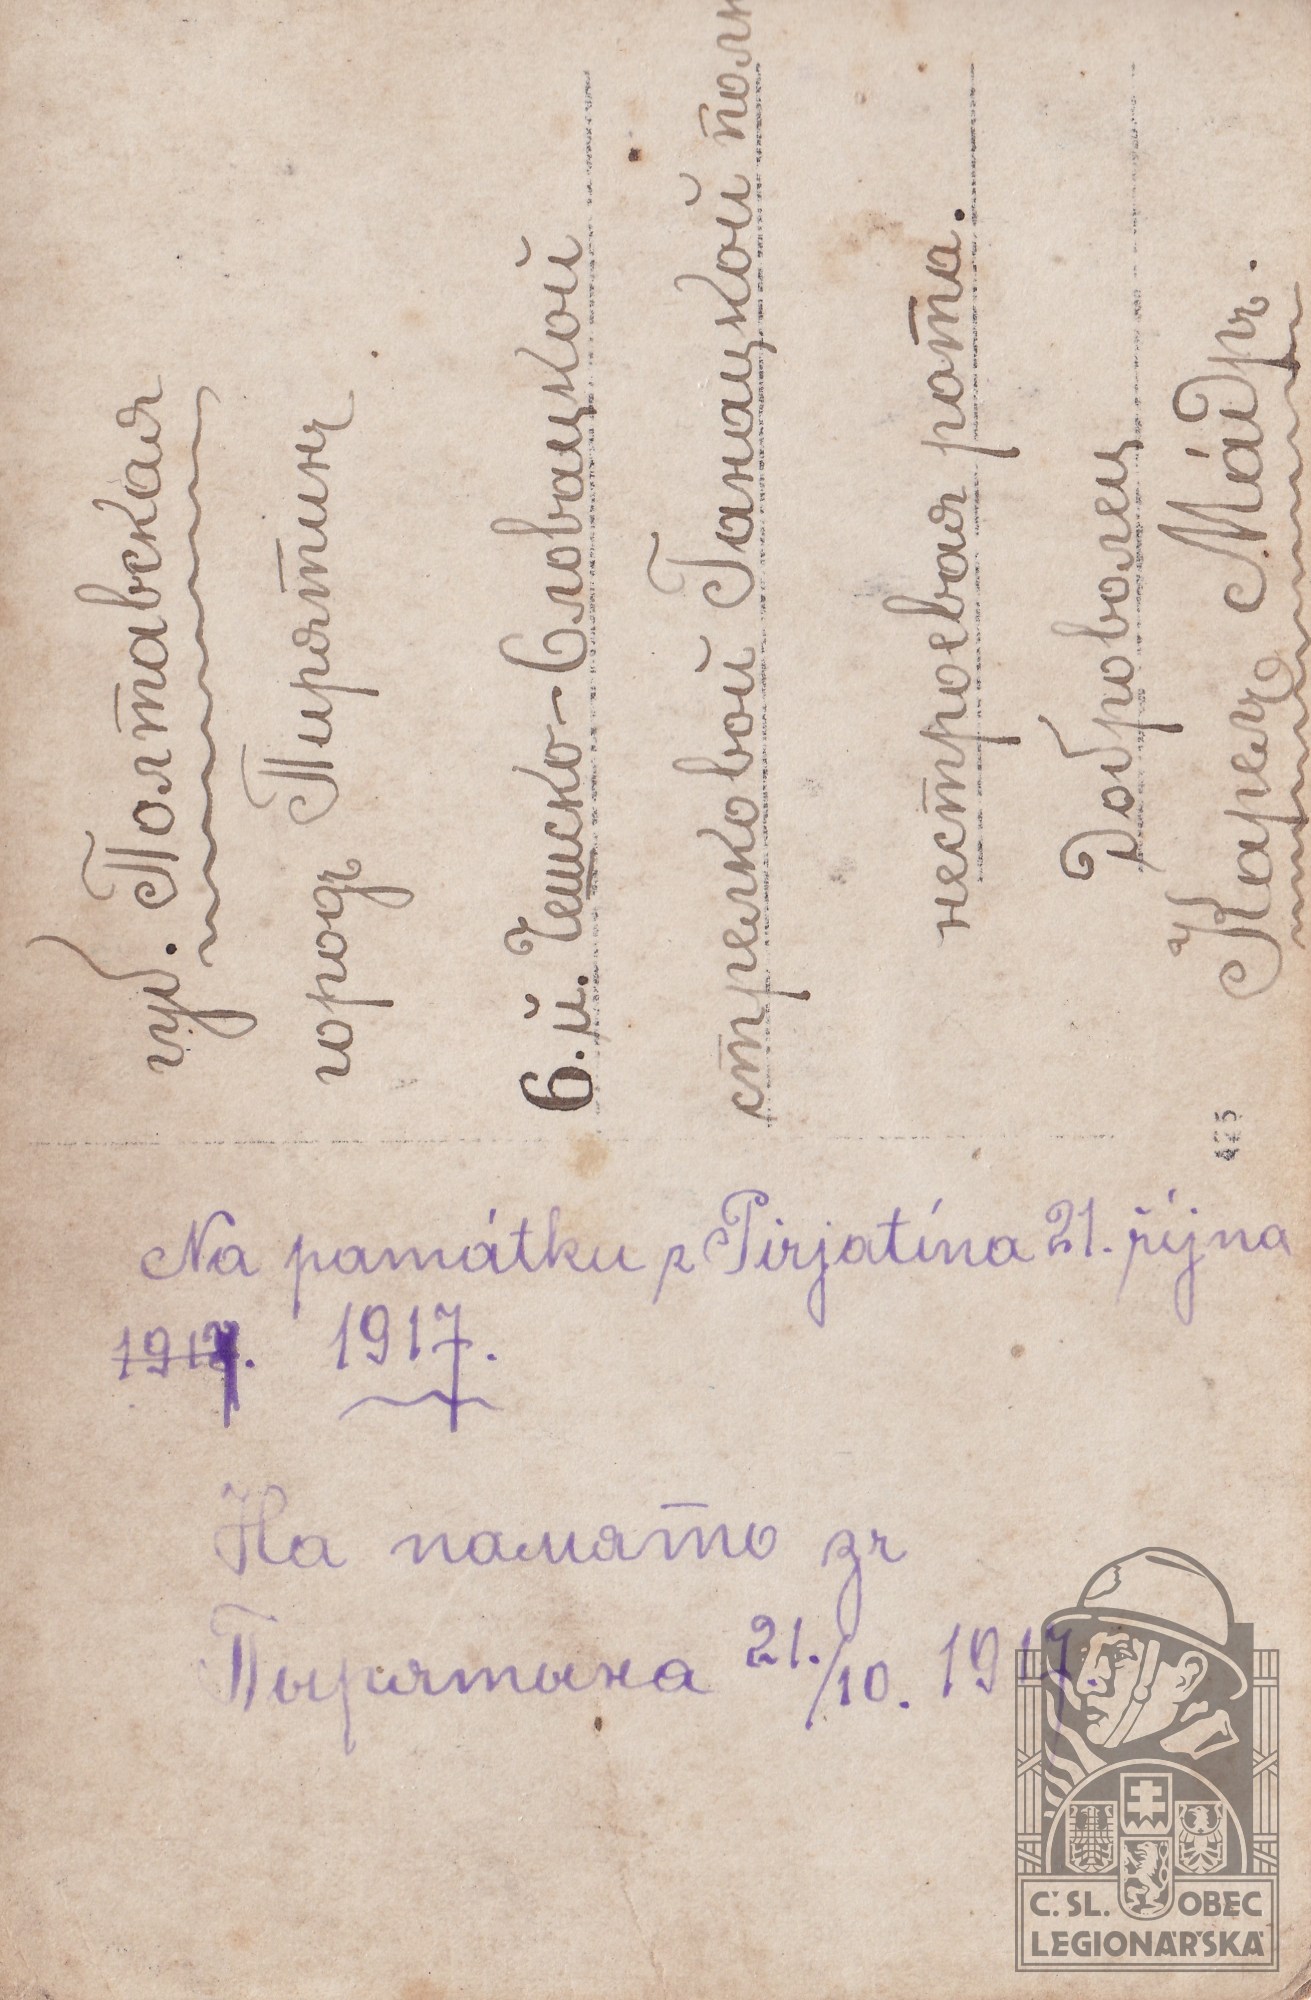 губ. Полтавская
городъ Пирятинъ
6.й. Чешско-Словацкой
стрелковой Ганацкой полк
нестроевая рота.
Доброволец
Карелъ Мáдръ.
475
Na památku z Pirjatína 21. října
1917. 1917.
На памято зъ
Пырятына 21./10. 1917.
Č. SL. OBEC
LEGIONÁŘSKÁ